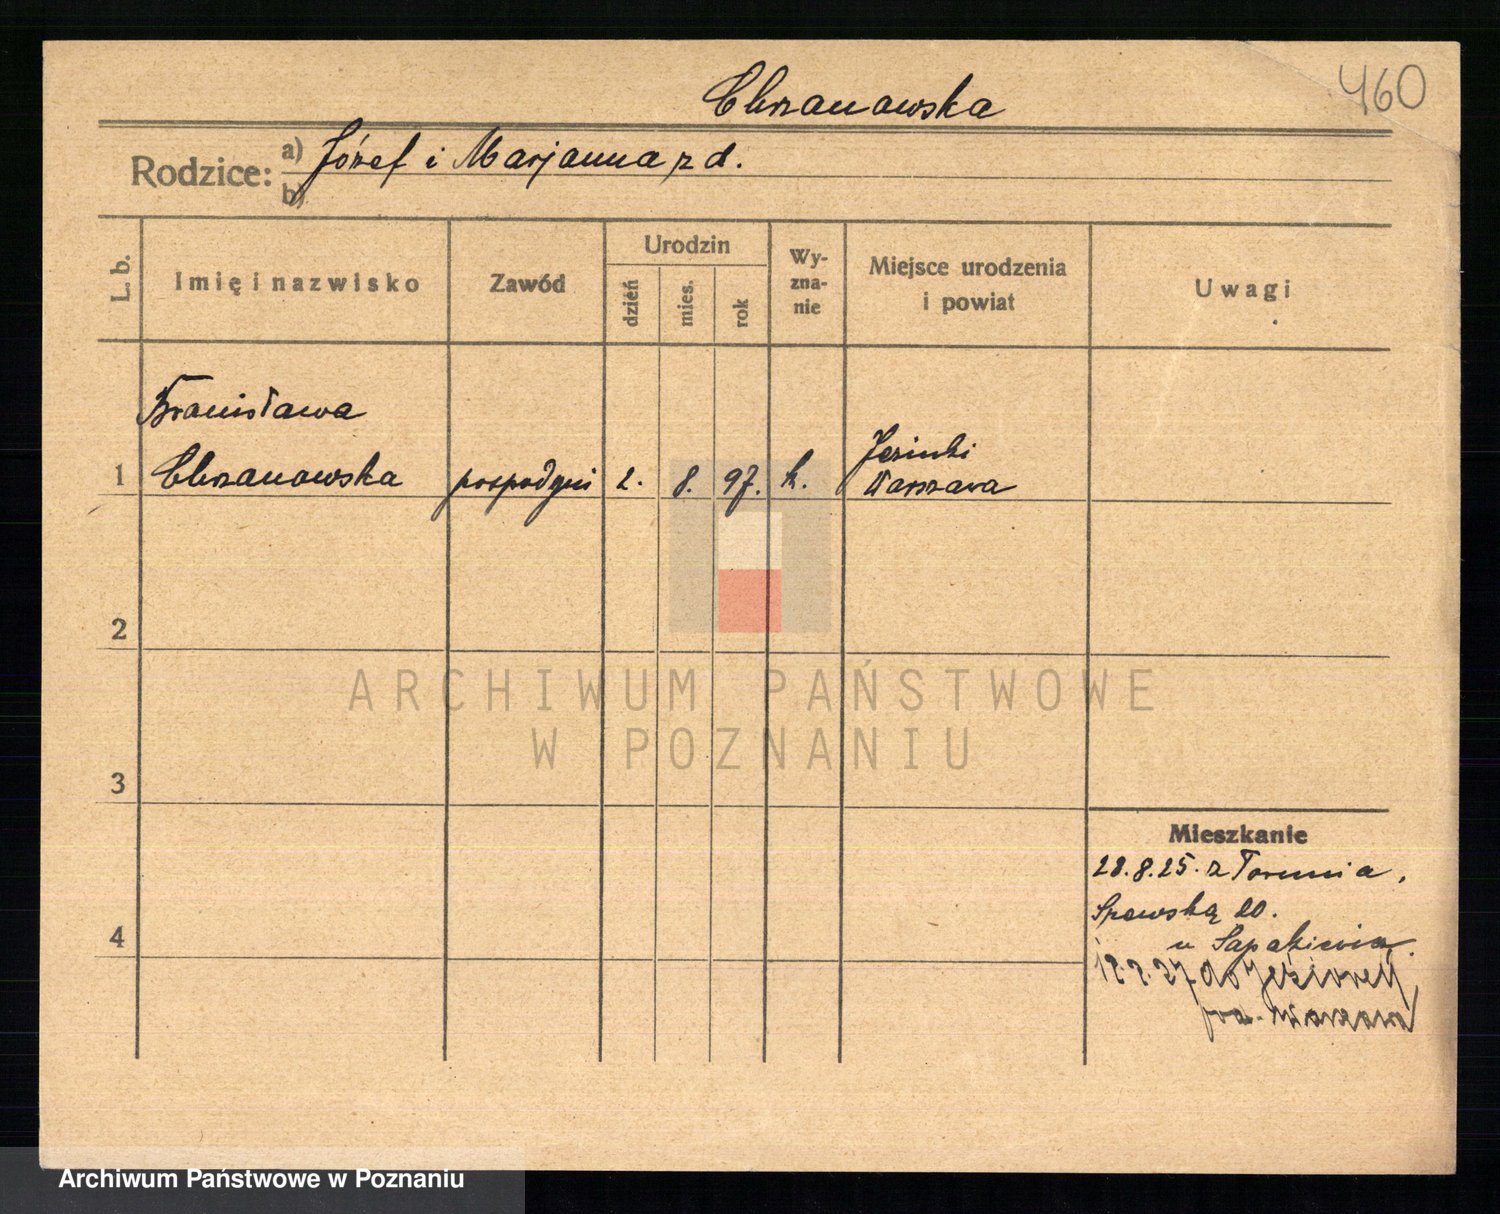 460
Chrzanowska
Rodzice: a) Józef i Marjanna z d.
b)
L. b.
Imię i nazwisko
Zawód
Urodzin
dzień
mies.
rok
Wy-
zna-
nie
Miejsce urodzenia
i powiat
Uwagi
Bronisława
1 Chrzanowska gospodyni 2. 8. 97. k.
Warszawa
2
3
4
Mieszkanie
28.8.25. z Torunia,
20.
u
do
pow. Warszawa
ARCHIWUM PAŃSTWOWE
W POZNANIU
Archiwum Państwowe w Poznaniu